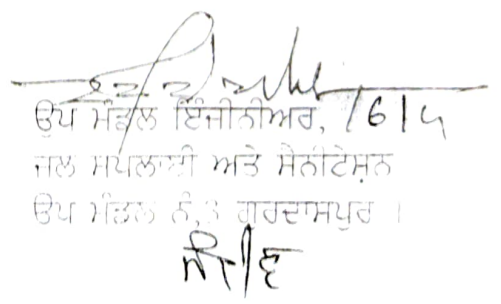 ਉਪ ਮੰਡਲ ਇੰਜੀਨੀਅਰ, /6/5
ਜਲ ਸਪਲਾਈ ਅਤੇ ਸੈਨੀਟੇਸ਼ਨ
ਉਪ ਮੰਡਲ ਨੰ, ਗੁਰਦਾਸਪੁਰ ।